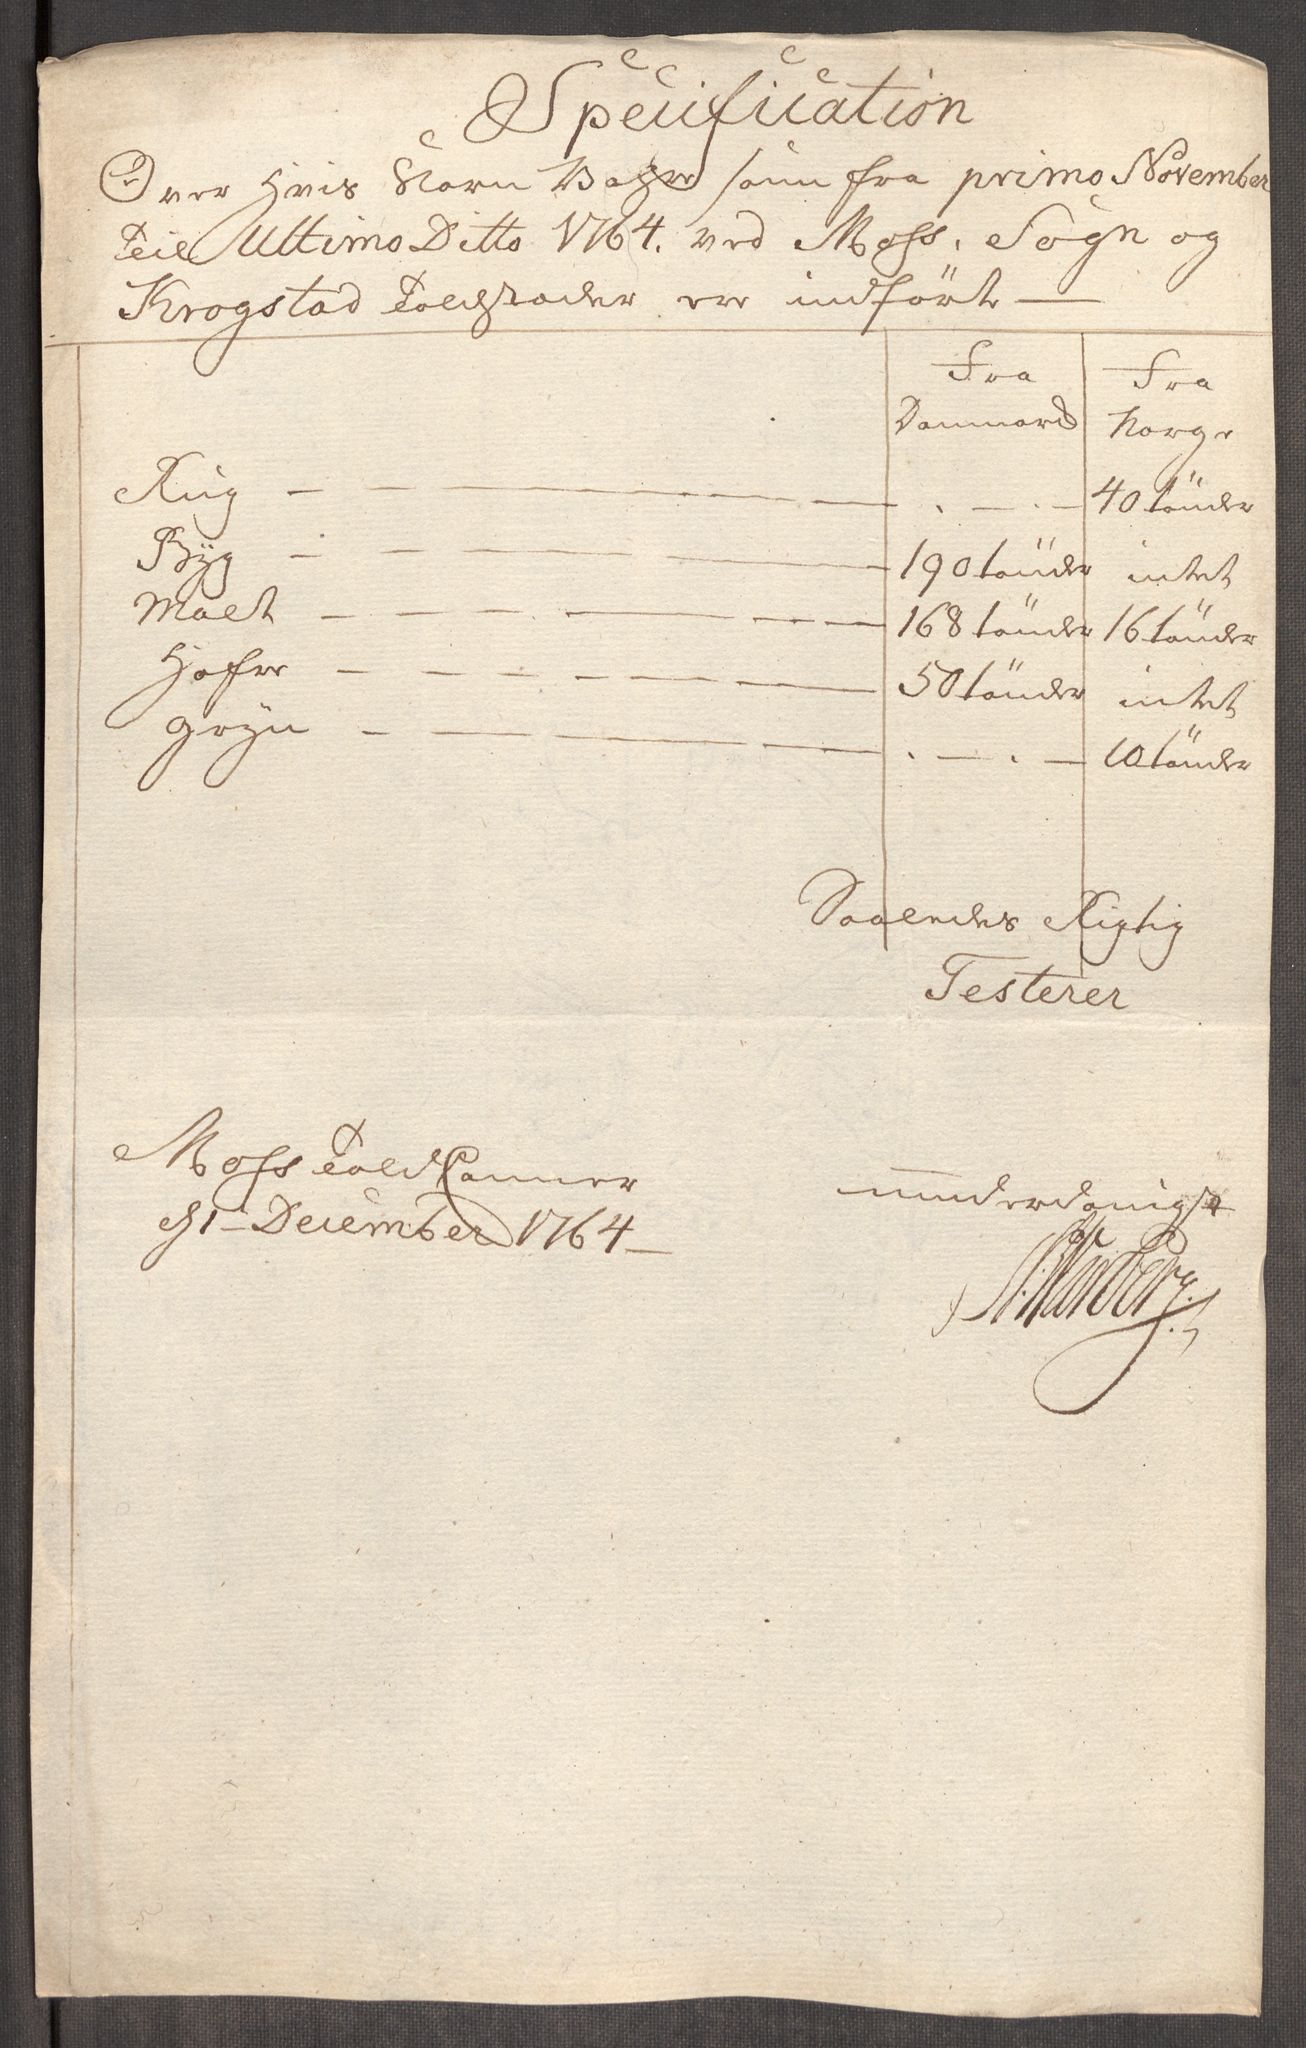 Specification
Over Hvis Korn Vahre som fra primo November
till Ultimo Ditto 1764. ved Moss, Sögn og
Krogstad Toldstæder ere indförte
Fra Danmark
Fra Norge
Rug — — 40 tönder
Byg — 190 tönder intet
Malt — 168 tönder 16 tönder
Hafre — 50 tönder intet
Gryn — — 10 tönder
Saaledes Rigtig
Testerer
Moss Told Kammer
d 1 December 1764
underdanigst